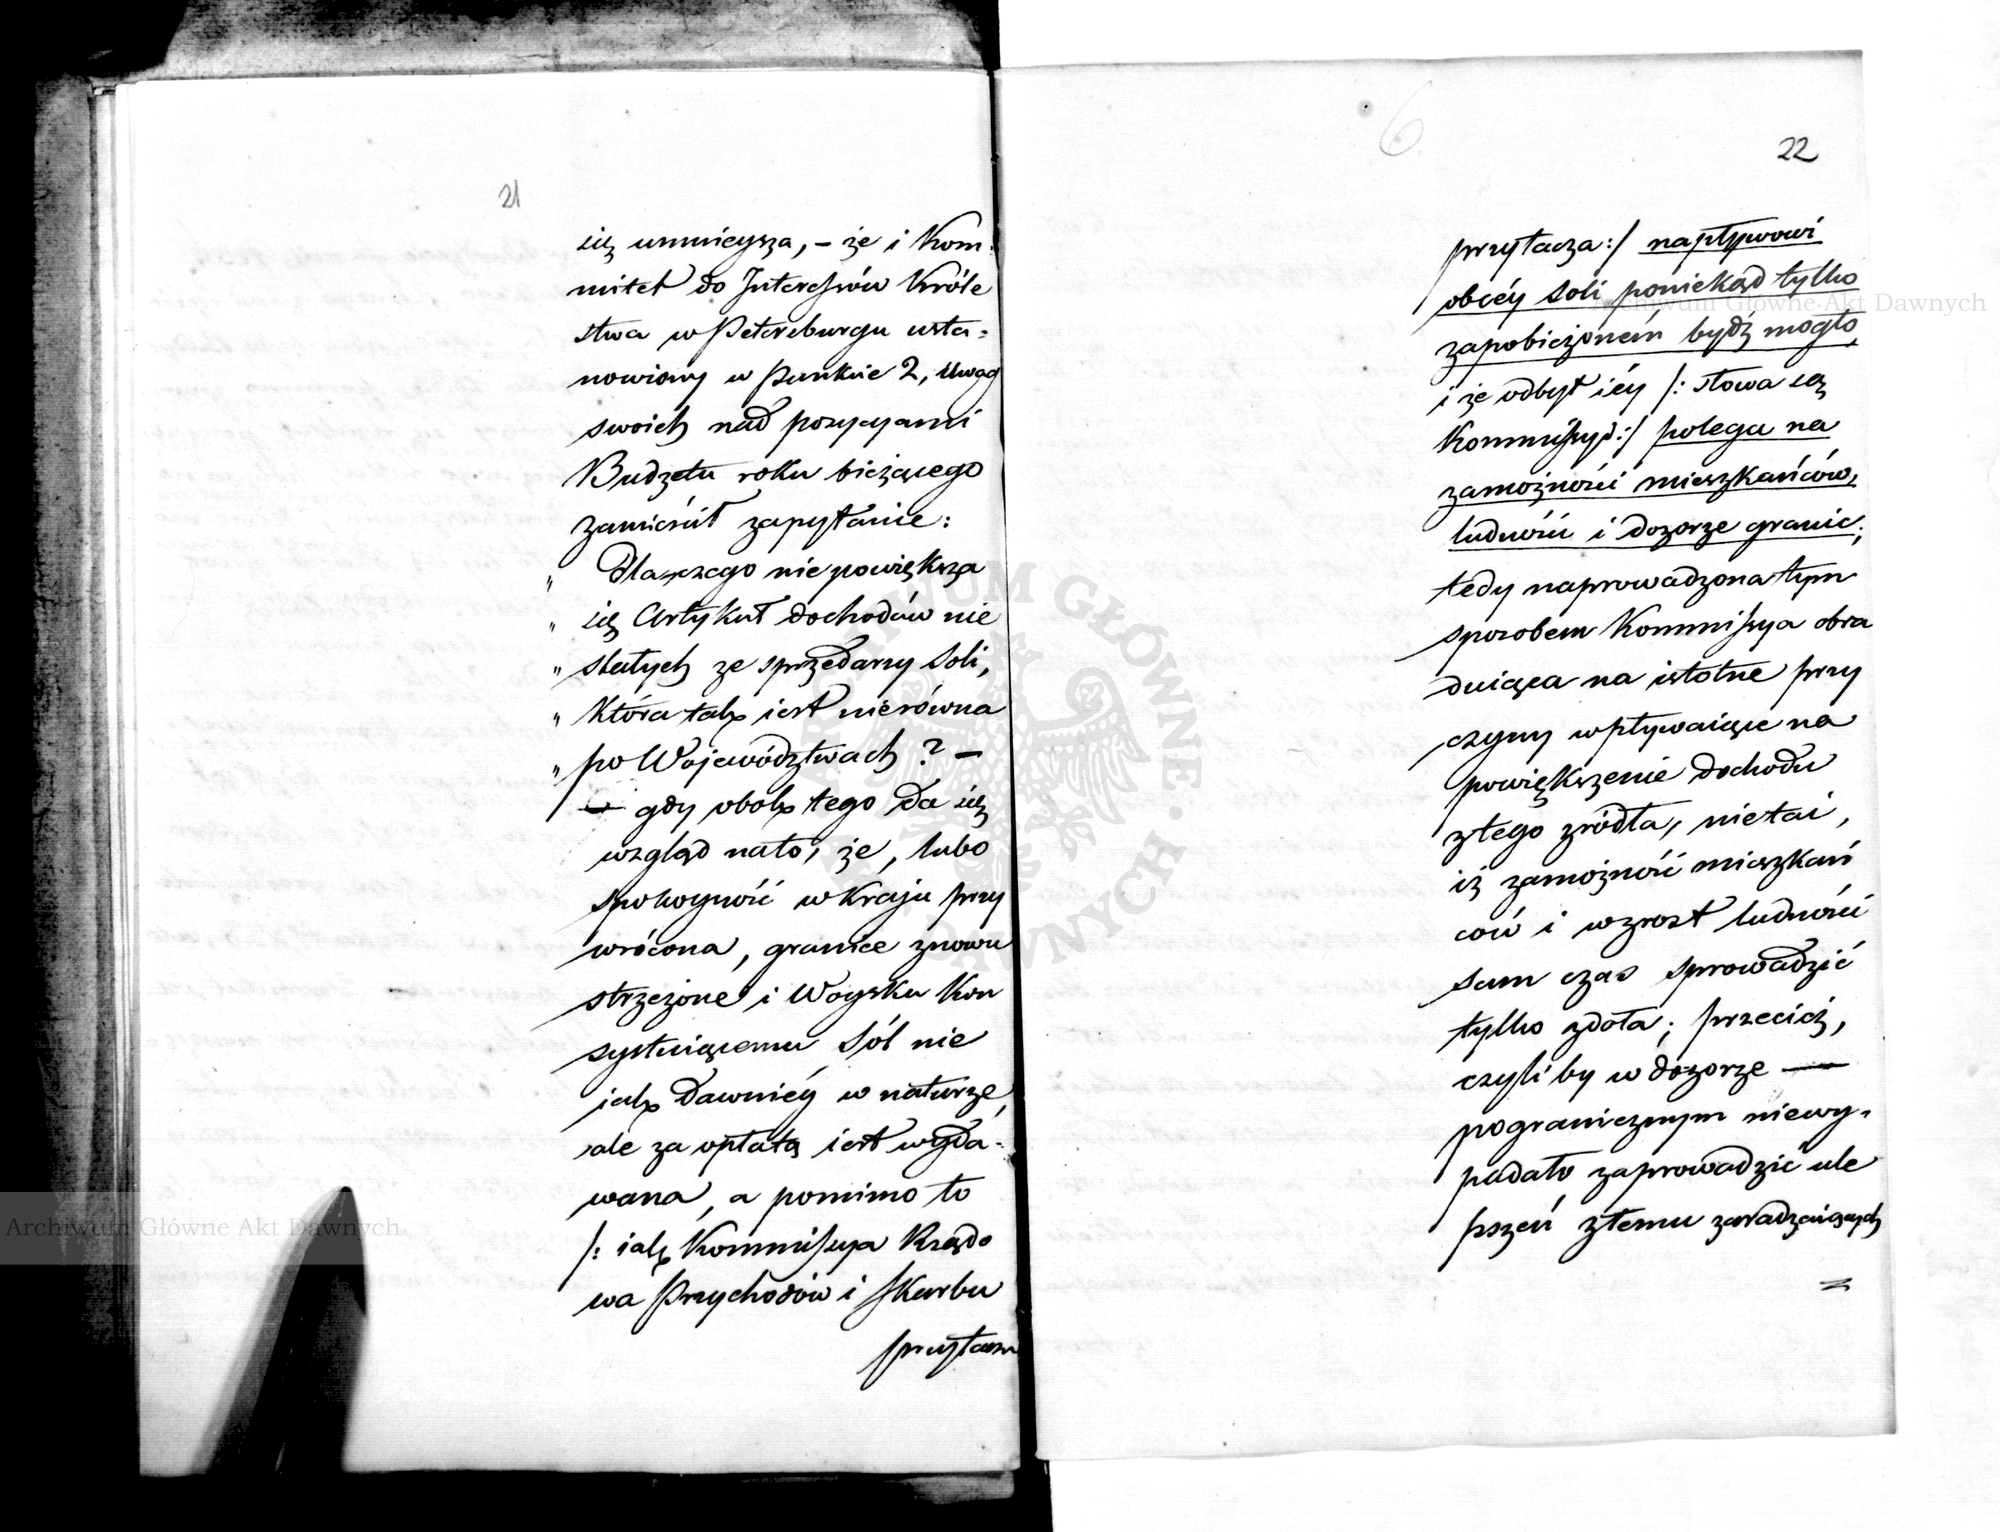 21
się umnieysza, – że i Kom-
mitet do Interessów Króle
stwa w Petersburgu usta-
nowiony w Punkcie 2, Uwag
swoich nad pozycyami
Budżetu roku bieżącego
zamieścił zapytanie:
„ Dlaczego nie powiększa
„ się Artykuł dochodów nie
„ stałych ze sprzedarzy Soli,
„ Która tak iest nierówna
„ po Województwach ? —
— gdy obok tego da się
wzgląd na to, że, lubo
spokoyność w Kraju przy
wrócona, granice znowu
strzeżone i Woysku Kon
systuiącemu Sól nie
iak dawniéy w naturze,
ale za opłatą iest wyda-
wana, a pomimo to
/: iak Kommissya Rządo
wa Przychodów i Skarbu
przytacza
6
22
przytacza :/ napływowi
obcéy soli poniekąd tylko
zapobieżonem bydź mogło,
i że odbyt iéy /: słowa są
Kommissyi :/ polega na
zamożności mieszkańców,
ludności i dozorze granic;
tedy naprowadzona tym
sposobem Kommissya obra
duiąca na istotne przy
czyny wpływaiące na
powiększenie dochodu
z tego zródła, nietai,
iż zamożność mieszkań
ców i wzrost ludności
sam czas sprowadzić
tylko zdoła; przecież,
czyliby w dozorze —
pogranicznym niewy-
padało zaprowadzić ule
pszeń złemu zaradzaiących
Archiwum Główne Akt Dawnych
Archiwum Główne Akt Dawnych
ARCHIWUM GŁÓWNE AKT DAWNYCH